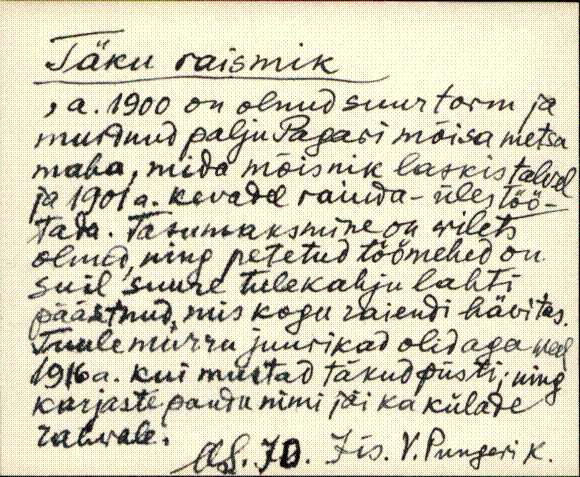 Täku raismik
, a. 1900 on olnud suur torm ja
murdnud palju Pagari mõisa metsa
maha, mida mõisnik laskis talvel
ja 1901 a. kevadel raiuda - üles töö-
tada. Tasumaksmine on vilets
olnud, ning petetud töömehed on
suil suure tulekahju lahti
päästnud, mis kogu raiendi hävitas.
Tuulemurru juurikad olid aga veel
1916 a. kui mustad täkud püsti; ning
karjaste pandu nimi jäi ka külade
rahvale.
Jis. V. Pungeri k.